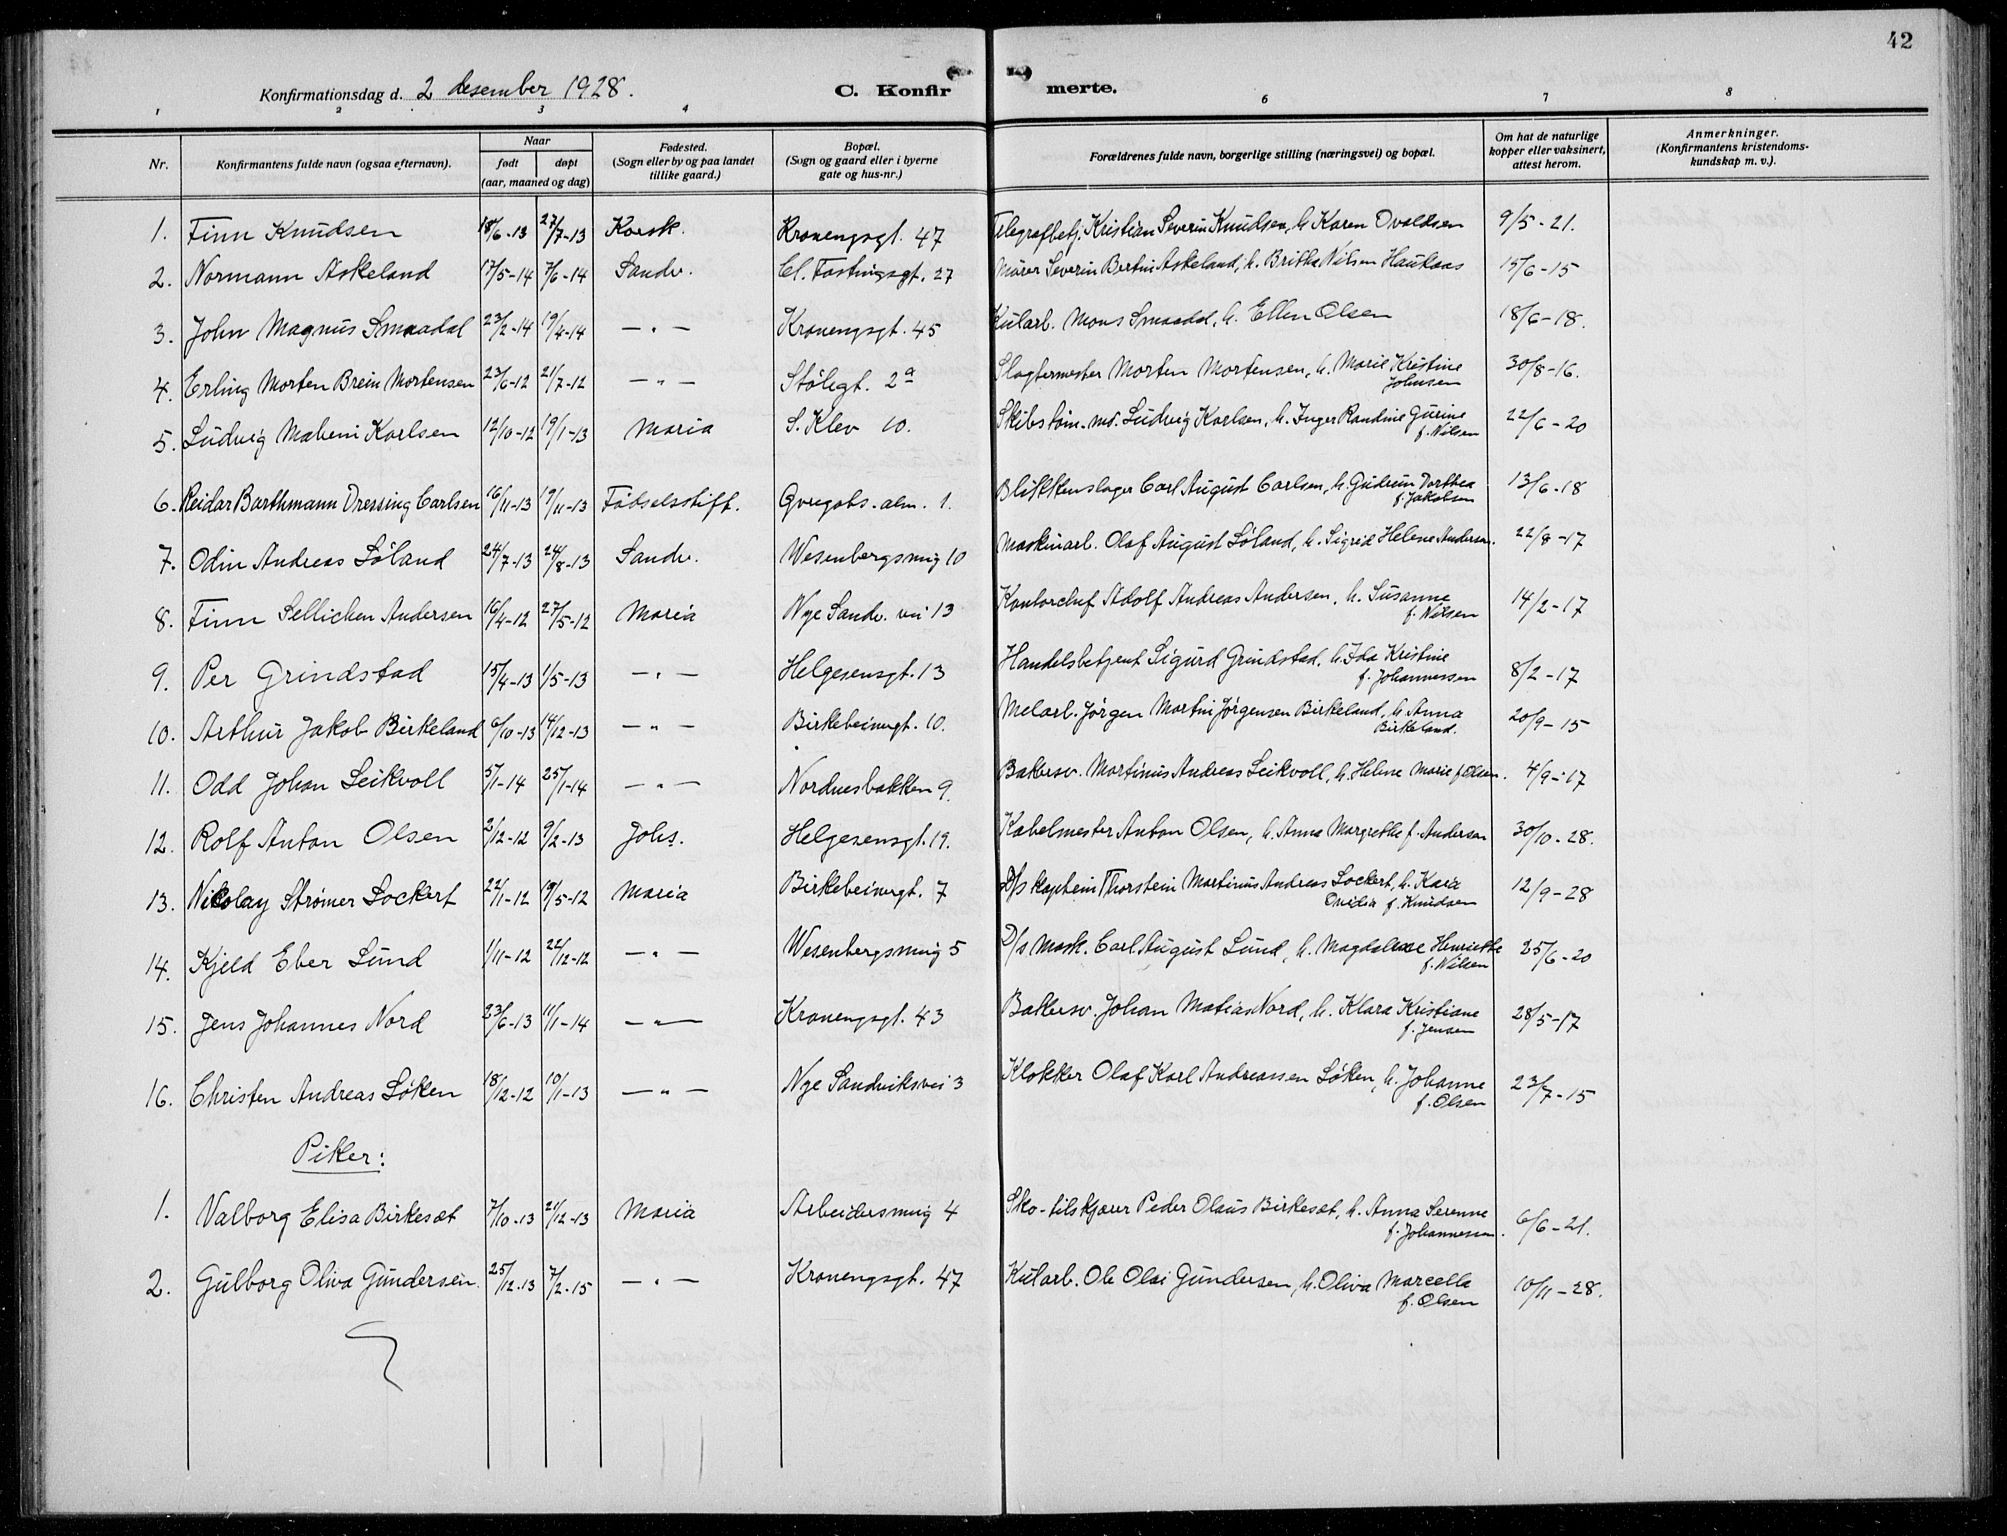 42
Konfirmationsdag d. 2 desember 1928.
C. Konfirmerte.
1 2 3 4 6 7 8
Nr. Konfirmantens fulde navn (ogsaa efternavn). Naar født døpt (aar, maaned og dag) Fødested. (Sogn eller by og paa landet tillike gaard.) Bopæl. (Sogn og gaard eller i byerne gate og hus-nr.) Forældrenes fulde navn, borgerlige stilling (næringsvei) og bopæl. Om hat de naturlige kopper eller vaksinert, attest herom. Anmerkninger. (Konfirmantens kristendoms-kundskap m. v.).
1. Finn Knudsen 18/6-13 27/7-13 Korsk. Kronengsgt. 47 Telegrafbetj. Kristian Severin Knudsen, h. Karen Ovaldsen 9/5-21.
2. Normann Askeland 17/5-14 7/6-14 Sandv. Cl. Fastingsgt. 27 Murer Severin Bertin Askeland, h. Britha Nilsen Haukaas 15/6-15
3. John Magnus Smaadal 23/2-14 19/4-14 —"— Kronengsgt. 45 Kularb. Mons Smaadal, h. Ellen Olsen 18/6-18.
4. Erling Morten Brein Mortensen 23/6-12 21/7-12 —"— Stølegt. 2a Slagtermester Morten Mortensen, h. Marie Kristine Johnsen 30/8-16.
5. Ludvig Mabeni Karlsen 12/10-12 19/1-13 Maria S. Klev 10. Skibstøm.md. Ludvig Karlsen, h. Inger Randine Gurine f. Nilsen 22/6-20
6. Reidar Barthmann Dressing Carlsen 16/11-13 19/11-13 Fødselsstift. Øvregobs. alm. 1. Blikkenslager Carl August Carlsen, h. Gudrun Dorthea f. Jakobsen 13/6-18
7. Odin Andreas Søland 24/7-13 24/8-13 Sandv. Wesenbergsmug 10 Maskinarb. Olaf August Søland, h. Sigrid Helene Andersen. 22/8-17
8. Finn Sellichen Andersen 16/4-12 27/5-12 Maria Nye Sandv. vei 13 Kontorchef Adolf Andreas Andersen, h. Susanne f. Nilsen 14/2-17
9. Per Grindstad 15/4-13 1/5-13 —"— Helgesensgt. 13 Handelsbetjent Sigurd Grindstad, h. Ida Kristine f. Johannessen 8/2-17
10. Arthur Jakob Birkeland 6/10-13 14/12-13 —"— Birkebeinergt. 10. Melarb. Jørgen Martin Jørgensen Birkeland, h. Anna Birkeland. 20/9-15
11. Odd Johan Leikvoll 5/1-14 25/1-14 —"— Nordnesbakken 9. Bakersv. Martinus Andreas Leikvoll, h. Helene Marie f. Olsen. 4/9-17
12. Rolf Anton Olsen 2/12-12 9/2-13 Johs. Helgesensgt. 19. Kabelmester Anton Olsen, h. Anna Margrethe f. Andersen 30/10-28.
13. Nikolay Strømer Lockert 22/1-12 19/5-12 Maria Birkebeinergt. 7 D/s kaptein Thorstein Martinus Andreas Lockert, h. Kaia Ovidia f. Knudsen 12/9-28
14. Kjeld Eber Lund 1/11-12 22/12-12 —"— Wesenbergsmug 5 D/s mask. Carl August Lund, h. Magdalene Henriette f. Nilsen 25/6-20
15. Jens Johannes Nord 23/6-13 11/1-14 —"— Kronengsgt. 43 Bakersv. Johan Matias Nord, h. Klara Kristiane f. Jensen 28/5-17
16. Christen Andreas Løken 18/12-12 10/1-13 —"— Nye Sandviksvei 3 Klokker Olaf Karl Andreassen Løken, h. Johanne f. Olsen 23/7-15
Piker:
1. Valborg Elisa Birkesæt 7/10-13 21/12-13 Maria Arbeidersmug 4 Sko-tilskjærer Peder Olaus Birkesæt, h. Anna Serenne f. Johannessen. 6/6-21.
2. Gulborg Oliva Gundersen. 25/12-13 7/2-15 —"— Kronengsgt. 47 Kularb. Ole Olai Gundersen, h. Oliva Marcella f. Olsen 10/11-28.